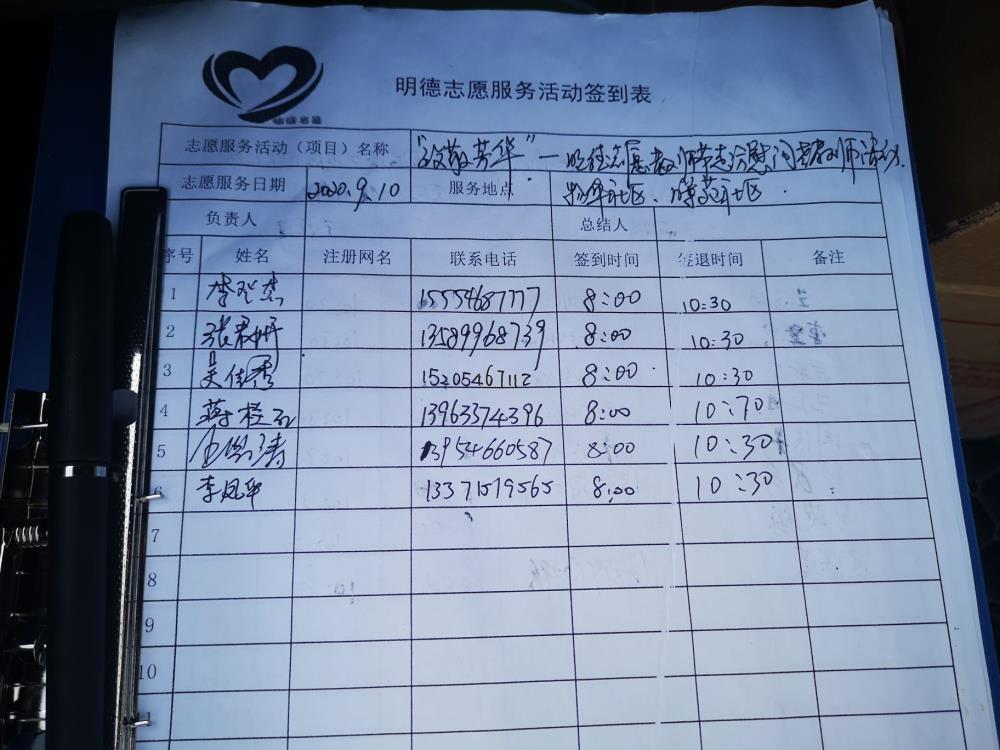 明德志愿服务活动签到表
志愿服务活动（项目）名称 "致敬芳华"—明德志愿教师节走访慰问老教师活动
志愿服务日期 2020.9.10 服务地点 社区、社区
负责人 总结人
序号 姓名 注册网名 联系电话 签到时间 签退时间 备注
1 15554687777 8:00 10:30
2 13589968739 8:00 10:30
3 吴佳秀 15205467112 8:00 10:30
4 蒋桂 13963374396 8:00 10:70
5 13954660587 8:00 10:30
6 李凤华 13371519565 8:00 10:30
7
8
9
10